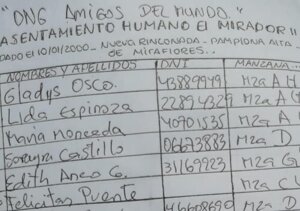 "ONG AMIGOS DEL MUNDO."
ASENTAMIENTO HUMANO EL MIRADOR"
DADO EL 10/01/2000 - NUEVA RINCONADA - PAMPLONA ALTA
DE MIRAFLORES..
NOMBRES Y APELLIDOS DNI MANZANA
Gladys Osco. 43889949 Mza A
Lida Espinoza 22894329 Mza A
Maria Monceda 40701535 Mza A
Soraya Castillo 06673883 Mza D
Edith Anco C. 31169223 Mza G
Felicitas Puente Mza C
46608690 Mza D